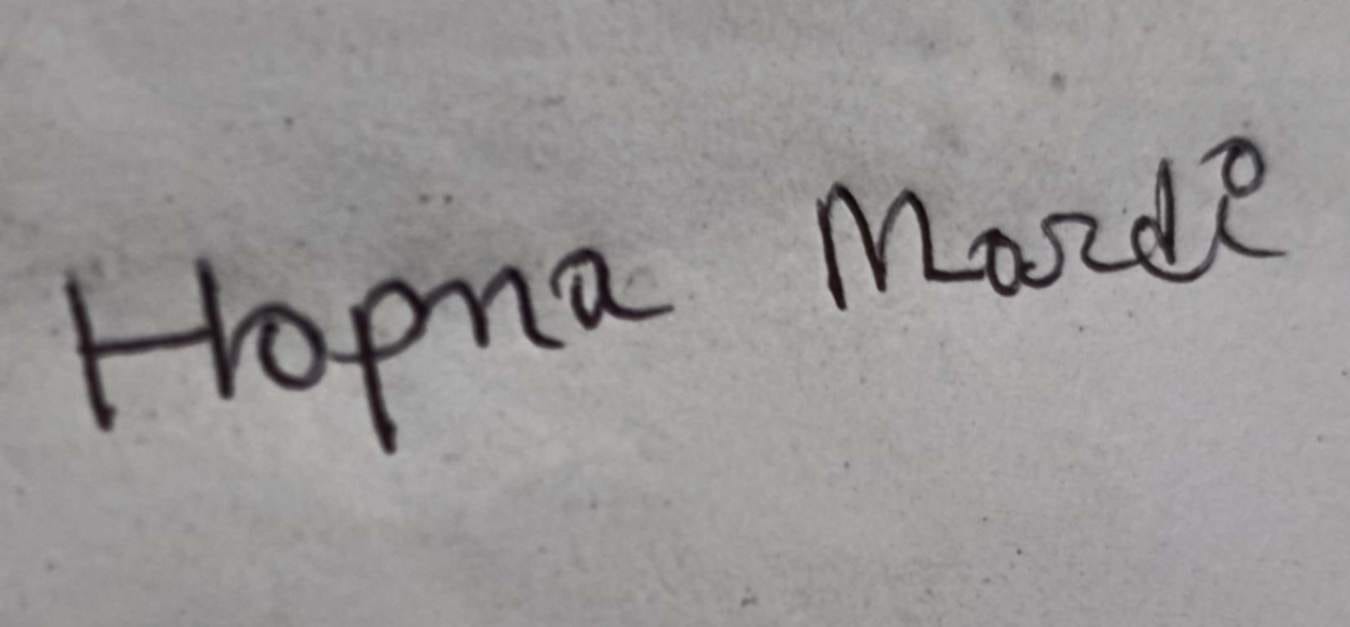 Hopna Mardi